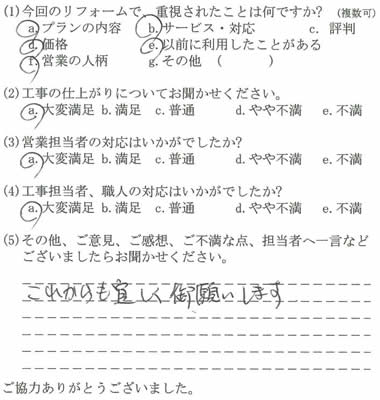 (1)今回のリフォームで、重視されたことは何ですか? (複数可)
a.プランの内容 b.サービス・対応 c. 評判
d.価格 e.以前に利用したことがある
f.営業の人柄 g.その他 ( )
(2)工事の仕上がりについてお聞かせください。
a.大変満足 b.満足 c.普通 d.やや不満 e.不満
(3)営業担当者の対応はいかがでしたか?
a.大変満足 b.満足 c.普通 d.やや不満 e.不満
(4)工事担当者、職人の対応はいかがでしたか?
a.大変満足 b.満足 c.普通 d.やや不満 e.不満
(5)その他、ご意見、ご感想、ご不満な点、担当者へ一言など
ございましたらお聞かせください。
これからも宜しく御願いします
ご協力ありがとうございました。